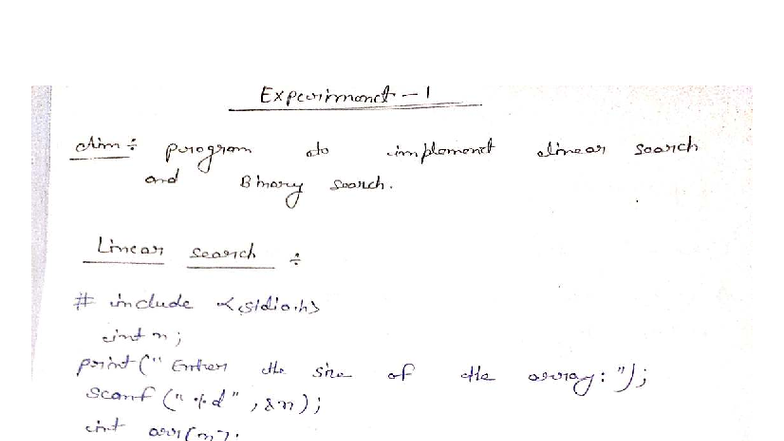 Experiment - 1
Aim ÷ program to implement linear search
and Binary search.
Linear search ÷
# include <stdio.h>
int n;
print(" Enter the size of the array: ");
scanf ("%d", &n);
int arr[n];